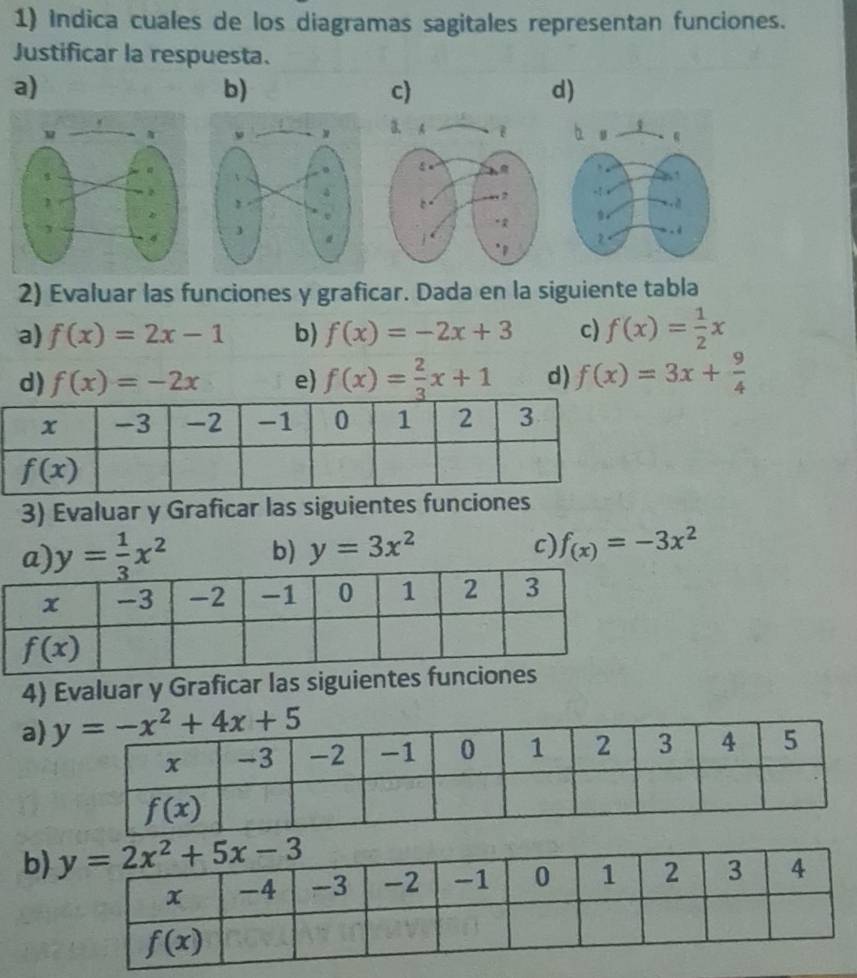 1) Indica cuales de los diagramas sagitales representan funciones.
Justificar la respuesta.
a) b) c) d)
2) Evaluar las funciones y graficar. Dada en la siguiente tabla
a) f(x) = 2x − 1 b) f(x) = −2x + 3 c) f(x) = 1/2 x
d) f(x) = −2x e) f(x) = 2/3 x + 1 d) f(x) = 3x + 9/4
x −3 −2 −1 0 1 2 3
f(x)
3) Evaluar y Graficar las siguientes funciones
a) y = 1/3 x² b) y = 3x² c) f(x) = −3x²
x −3 −2 −1 0 1 2 3
f(x)
4) Evaluar y Graficar las siguientes funciones
a) y = −x² + 4x + 5
x −3 −2 −1 0 1 2 3 4 5
f(x)
b) y = 2x² + 5x − 3
x −4 −3 −2 −1 0 1 2 3 4
f(x)